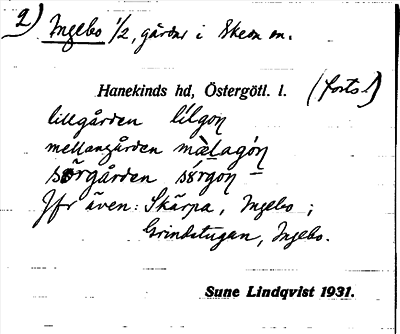 2) Ingebo 1/2, gårdar i Skeda sn.
Hanekinds hd, Östergötl. l. (forts.)
lillgården lílgoɳ
mellangården mæ̀lagóɳ
sörgården sǿrgoɳ
Jfr även: Skärpa, Ingebo;
Grindstugan, Ingebo.
Sune Lindqvist 1931.